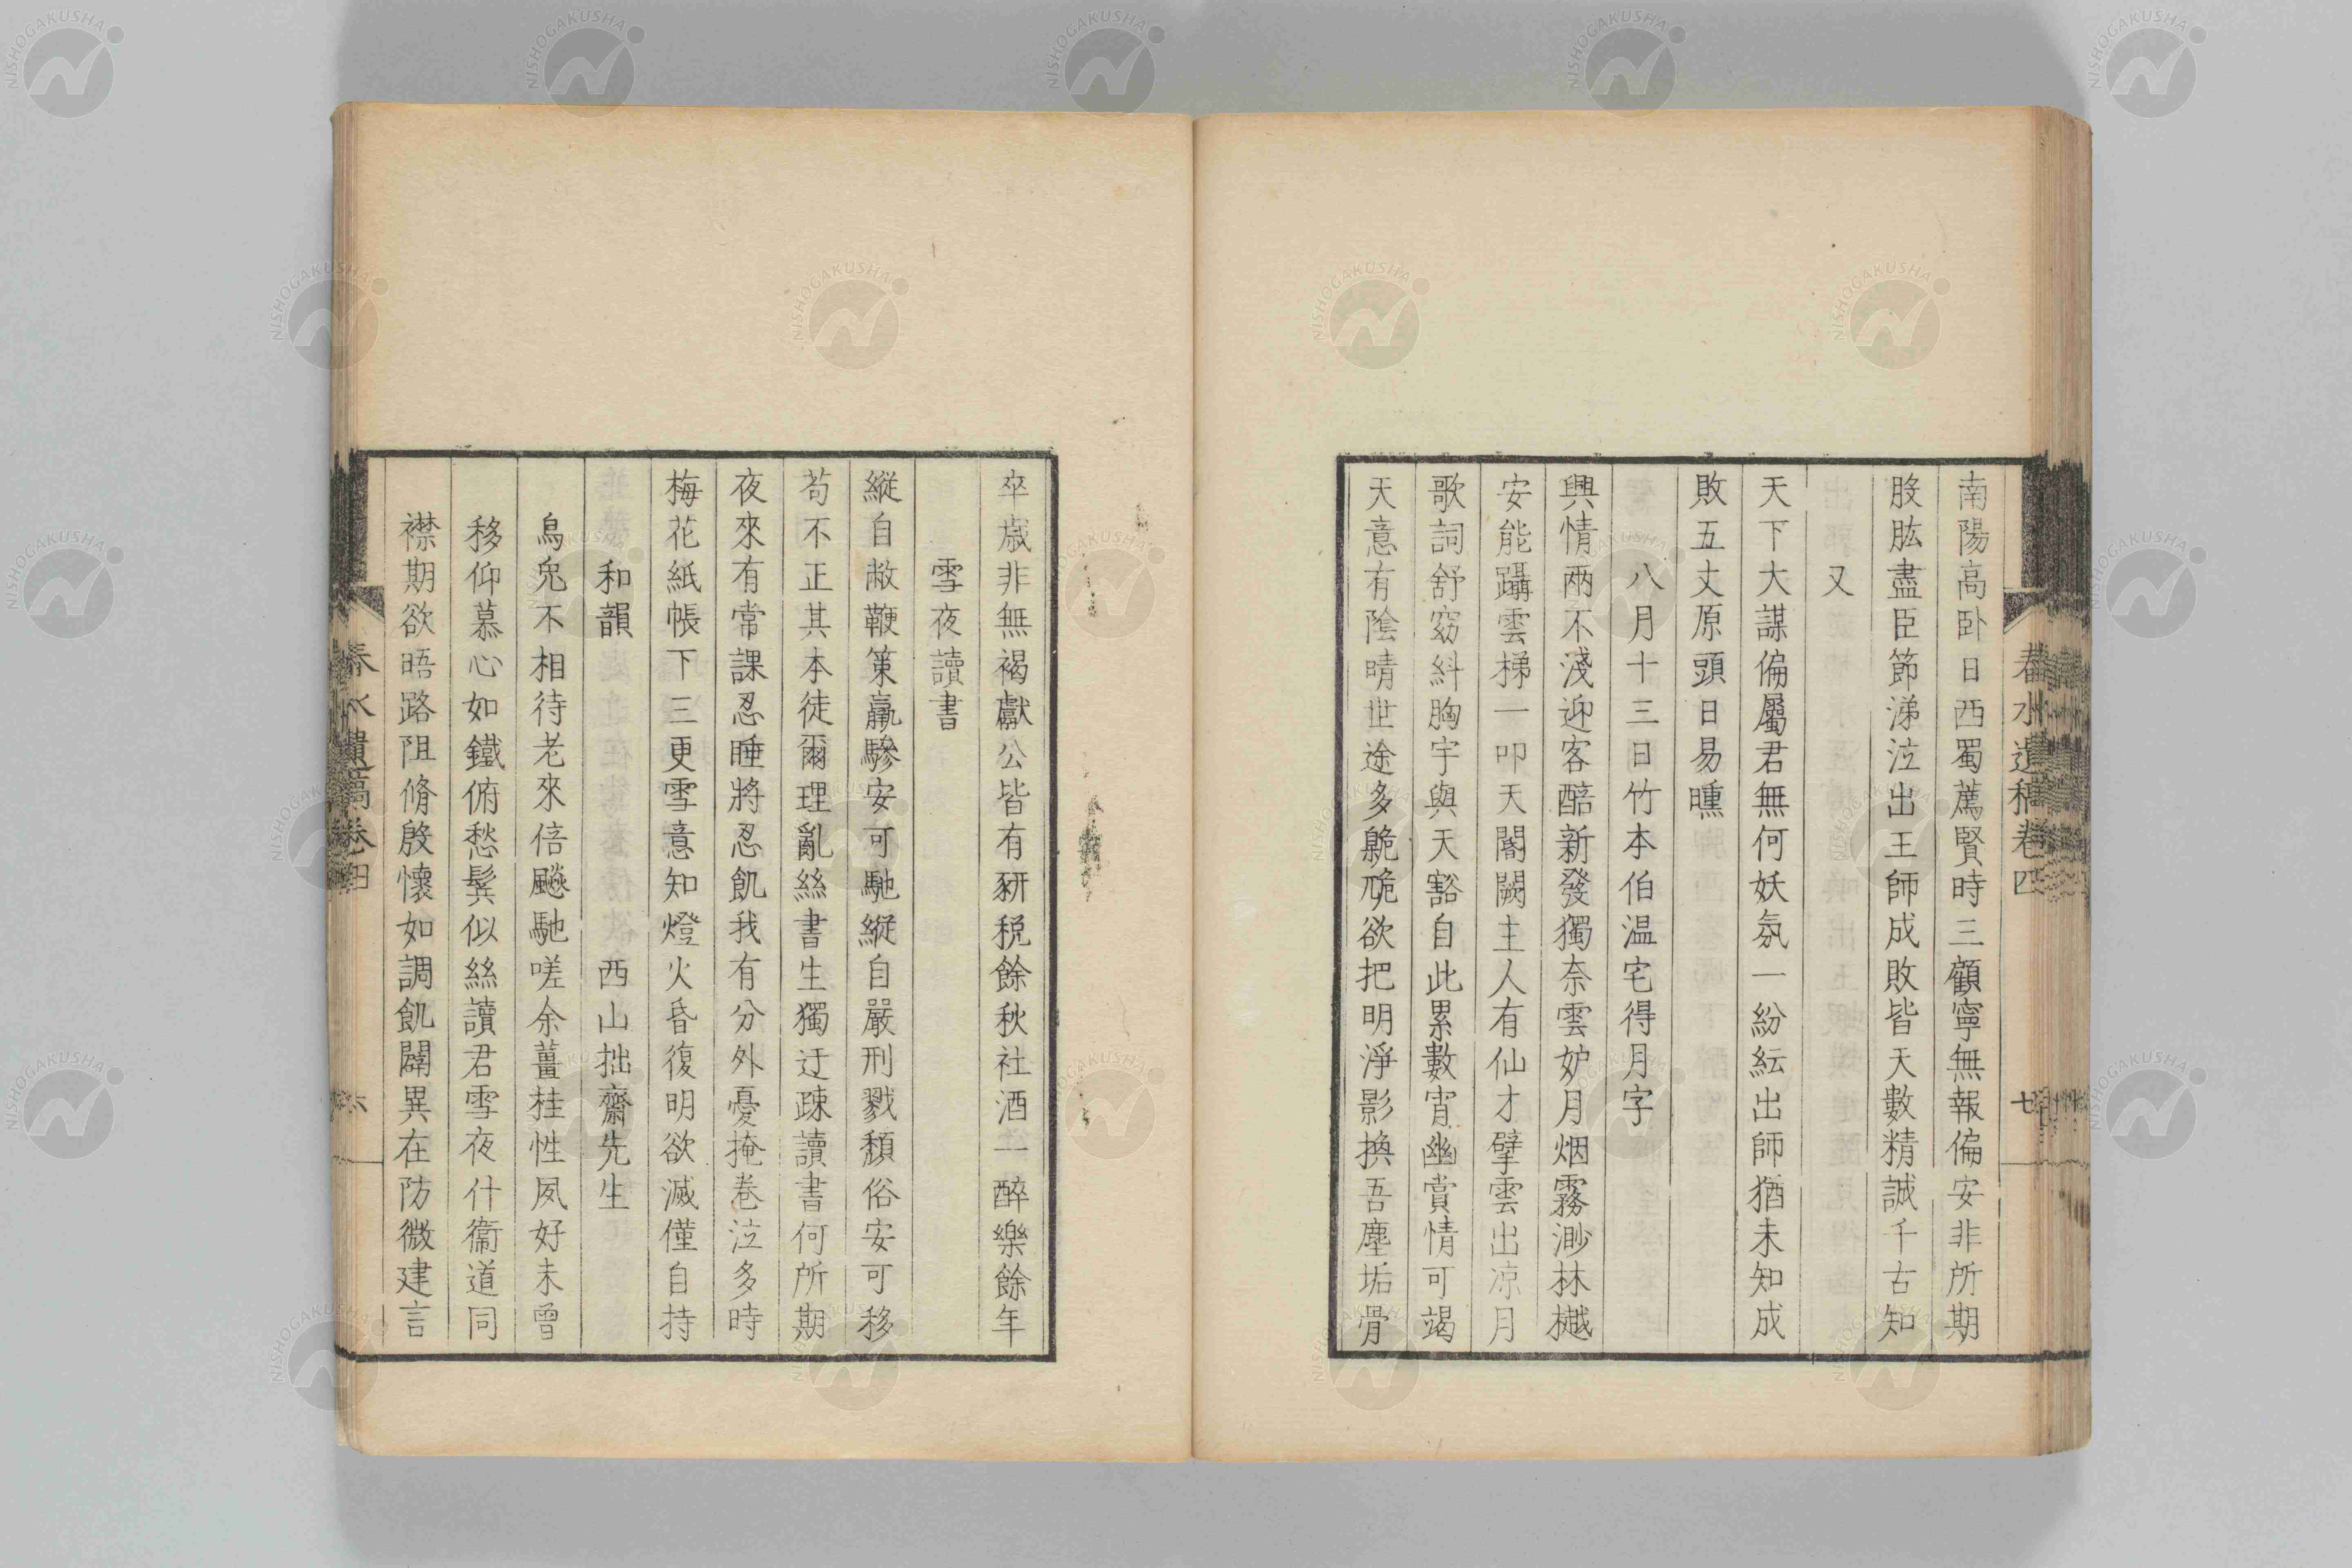 春水遺稿卷四
七
南陽高卧日西蜀薦賢時三顧寧無報偏安非所期
股肱盡臣節涕泣出王師成敗皆天數精誠千古知
又
天下大謀偏屬君無何妖氛一紛紜出師猶未知成
敗五丈原頭日易曛
八月十三日竹本伯温宅得月字
興情兩不淺迎客醅新發獨奈雲妒月烟霧渺林樾
安能躡雲梯一叩天閽闕主人有仙才擘雲出凉月
歌詞舒窈糾胸宇與天豁自此累數宵幽賞情可竭
天意有陰晴世途多臲卼欲把明淨影換吾塵垢骨
卒歲非無褐獻公皆有豜税餘秋社酒一醉樂餘年
雪夜讀書
縱自敝鞭策羸驂安可馳縱自嚴刑戮頽俗安可移
苟不正其本徒爾理亂絲書生獨迂疎讀書何所期
夜來有常課忍睡將忍飢我有分外憂掩卷泣多時
梅花紙帳下三更雪意知燈火昏復明欲滅僅自持
和韻 西山拙齋先生
烏兔不相待老來倍飈馳嗟余薑桂性夙好未曾
移仰慕心如鐵俯愁鬂似絲讀君雪夜什衞道同
襟期欲晤路阻脩殷懷如調飢闢異在防微建言
春水遺稿卷四
六
NISHOGAKUSHA